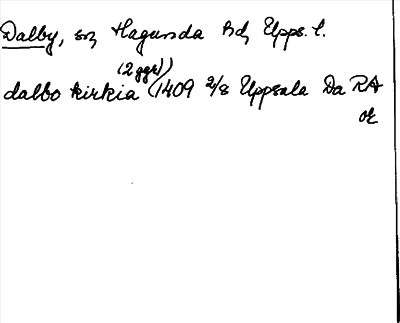 Dalby, sn Hagunda hd, Upps. l.
(2 ggr)
dalbo kirkia (1409 2/8 Uppsala Da RA
or